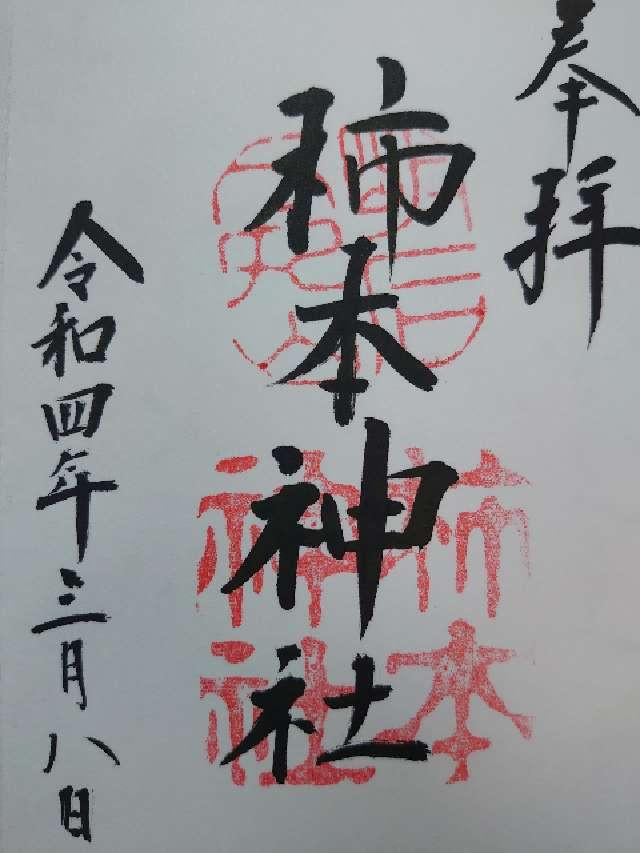 奉拝
柿本神社
令和四年三月八日
柿本
神社